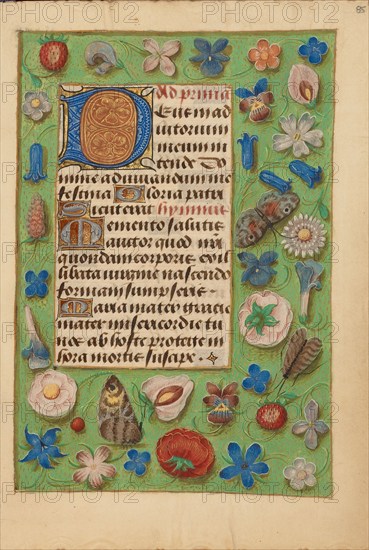 95
Ad primā
Deus in ad
iutorium
meum in
tende Do
mine ad adiuvandum me
festina Gloria patri
Sicut erat hymnus
Memento salutis
auctor quod nr̄i
quondam corporis ex il
libata virgine nascendo
formam sumpseris
Maria mater gracie
mater misericordie tu
nos ab hoste protege in
hora mortis suscipe